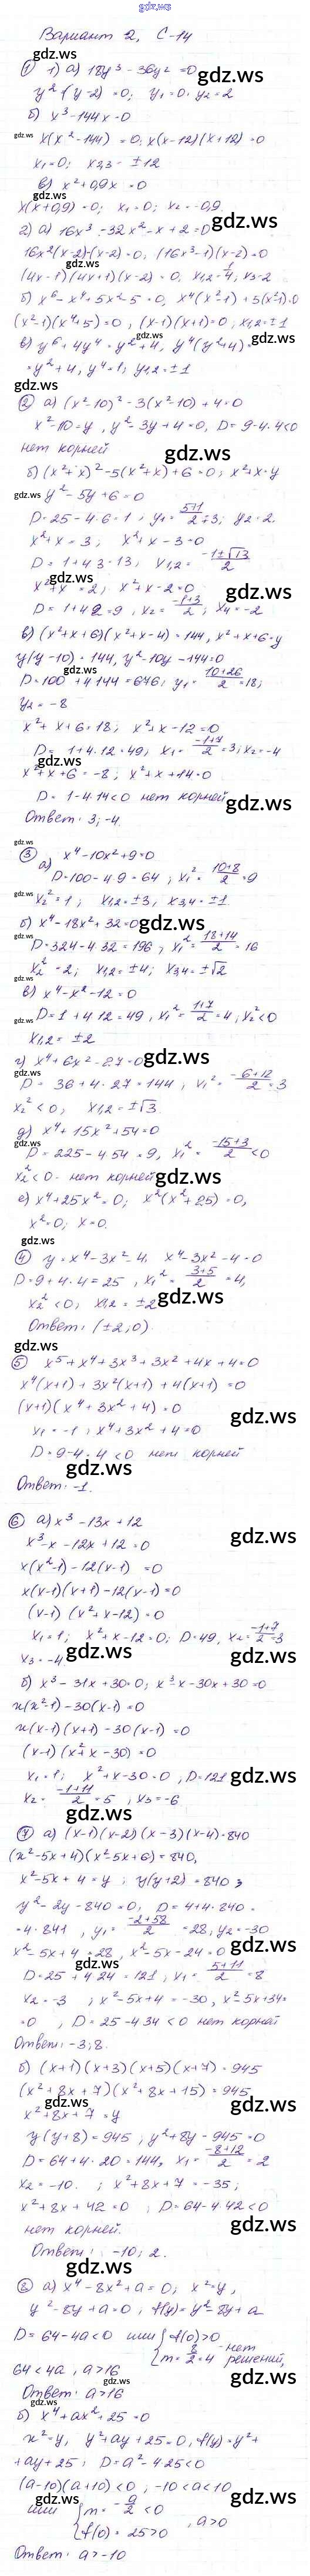 gdz.ws
Вариант 2, С-14
① 1) а) 18y³ - 36y² = 0
y²(y-2) = 0; y₁ = 0. y₂ = 2
б) x³ - 144x = 0
x(x²-144) = 0; x(x-12)(x+12) = 0
x₁ = 0; x₂,₃ = ±12
в) x² + 0,9x = 0
x(x+0,9) = 0; x₁ = 0; x₂ = -0,9
2) а) 16x³ - 32x² - x + 2 = 0
16x²(x-2) - (x-2) = 0, (16x²-1)(x-2) = 0
(4x-1)(4x+1)(x-2) = 0, x₁,₂ = 1/4, x₃ = 2
б) x⁶ - x⁴ + 5x² - 5 = 0, x⁴(x²-1) + 5(x²-1) = 0
(x²-1)(x⁴+5) = 0, (x-1)(x+1) = 0; x₁,₂ = ±1
в) y⁶ + 4y⁴ = y² + 4, y⁴(y²+4) =
= y² + 4, y⁴ = 1; y₁,₂ = ±1
② а) (x²-10)² - 3(x²-10) + 4 = 0
x² - 10 = y, y² - 3y + 4 = 0, D = 9 - 4·4 < 0
нет корней
б) (x²+x)² - 5(x²+x) + 6 = 0; x²+x = y
y² - 5y + 6 = 0
D = 25 - 4·6 = 1, y₁ = (5+1)/2 = 3; y₂ = 2
x² + x = 3; x² + x - 3 = 0
D = 1 + 4·3 = 13, x₁,₂ = (-1±√13)/2
x² + x = 2; x² + x - 2 = 0
D = 1 + 4·2 = 9, x₂ = (-1+3)/2; x₄ = -2
в) (x²+x+6)(x²+x-4) = 144, x²+x+6 = y
y(y-10) = 144, y² - 10y - 144 = 0
D = 100 + 4·144 = 676; y₁ = (10+26)/2 = 18;
y₂ = -8
x² + x + 6 = 18; x² + x - 12 = 0
D = 1 + 4·12 = 49; x₁ = (-1+7)/2 = 3; x₂ = -4
x² + x + 6 = -8; x² + x + 14 = 0
D = 1 - 4·14 < 0 нет корней
Ответ: 3; -4.
③ а) x⁴ - 10x² + 9 = 0
D = 100 - 4·9 = 64; x₁² = (10+8)/2 = 9
x₂² = 1; x₁,₂ = ±3, x₃,₄ = ±1
б) x⁴ - 18x² + 32 = 0
D = 324 - 4·32 = 196, x₁² = (18+14)/2 = 16
x₂² = 2; x₁,₂ = ±4; x₃,₄ = ±√2
в) x⁴ - x² - 12 = 0
D = 1 + 4·12 = 49, x₁² = (1+7)/2 = 4, x₂² < 0
x₁,₂ = ±2
г) x⁴ + 6x² - 27 = 0
D = 36 + 4·27 = 144, x₁² = (-6+12)/2 = 3
x₂² < 0; x₁,₂ = ±√3.
д) x⁴ + 15x² + 54 = 0
D = 225 - 4·54 = 9, x₁² = (-15+3)/2 < 0
x₂² < 0 - нет корней
е) x⁴ + 25x² = 0; x²(x²+25) = 0,
x² = 0; x = 0.
④ y = x⁴ - 3x² - 4, x⁴ - 3x² - 4 = 0
D = 9 + 4·4 = 25, x₁² = (3+5)/2 = 4,
x₂² < 0; x₁,₂ = ±2
Ответ: (±2; 0).
⑤ x⁵ + x⁴ + 3x³ + 3x² + 4x + 4 = 0
x⁴(x+1) + 3x²(x+1) + 4(x+1) = 0
(x+1)(x⁴+3x²+4) = 0
x₁ = -1; x⁴ + 3x² + 4 = 0
D = 9 - 4·4 < 0 нет корней
Ответ: -1.
⑥ а) x³ - 13x + 12
x³ - x - 12x + 12 = 0
x(x²-1) - 12(x-1) = 0
x(x-1)(x+1) - 12(x-1) = 0
(x-1)(x²+x-12) = 0
x₁ = 1; x² + x - 12 = 0; D = 49, x₂ = (-1+7)/2 = 3
x₃ = -4
б) x³ - 31x + 30 = 0; x³ - x - 30x + 30 = 0
x(x²-1) - 30(x-1) = 0
x(x-1)(x+1) - 30(x-1) = 0
(x-1)(x²+x-30) = 0
x₁ = 1; x² + x - 30 = 0, D = 121
x₂ = (-1+11)/2 = 5; x₃ = -6
⑦ а) (x-1)(x-2)(x-3)(x-4) = 840
(x²-5x+4)(x²-5x+6) = 840,
x² - 5x + 4 = y; y(y+2) = 840;
y² - 2y - 840 = 0; D = 4 + 4·840 =
= 4·841, y₁ = (-2+58)/2 = 28; y₂ = -30
x² - 5x + 4 = 28, x² - 5x - 24 = 0
D = 25 + 4·24 = 121; x₁ = (5+11)/2 = 8
x₂ = -3; x² - 5x + 4 = -30, x² - 5x + 34 =
= 0, D = 25 - 4·34 < 0 нет корней
Ответ: -3; 8.
б) (x+1)(x+3)(x+5)(x+7) = 945
(x²+8x+7)(x²+8x+15) = 945
x² + 8x + 7 = y
y(y+8) = 945; y² + 8y - 945 = 0
D = 64 + 4·20 = 144, x₁ = (-8+12)/2 = 2
x₂ = -10.; x² + 8x + 7 = -35;
x² + 8x + 42 = 0; D = 64 - 4·42 < 0
нет корней.
Ответ: -10; 2.
⑧ а) x⁴ - 8x² + a = 0; x² = y,
y² - 8y + a = 0, f(y) = y² - 8y + a
D = 64 - 4a < 0 или { f(0) > 0
m = 8/2 = 4 - нет решений,
64 < 4a, a > 16
Ответ: a > 16
б) x⁴ + ax² + 25 = 0
x² = y, y² + ay + 25 = 0, f(y) = y² +
+ ay + 25; D = a² - 4·25 < 0
(a-10)(a+10) < 0, -10 < a < 10
или { m = -a/2 < 0
f(0) = 25 > 0, a > 0
Ответ: a > -10